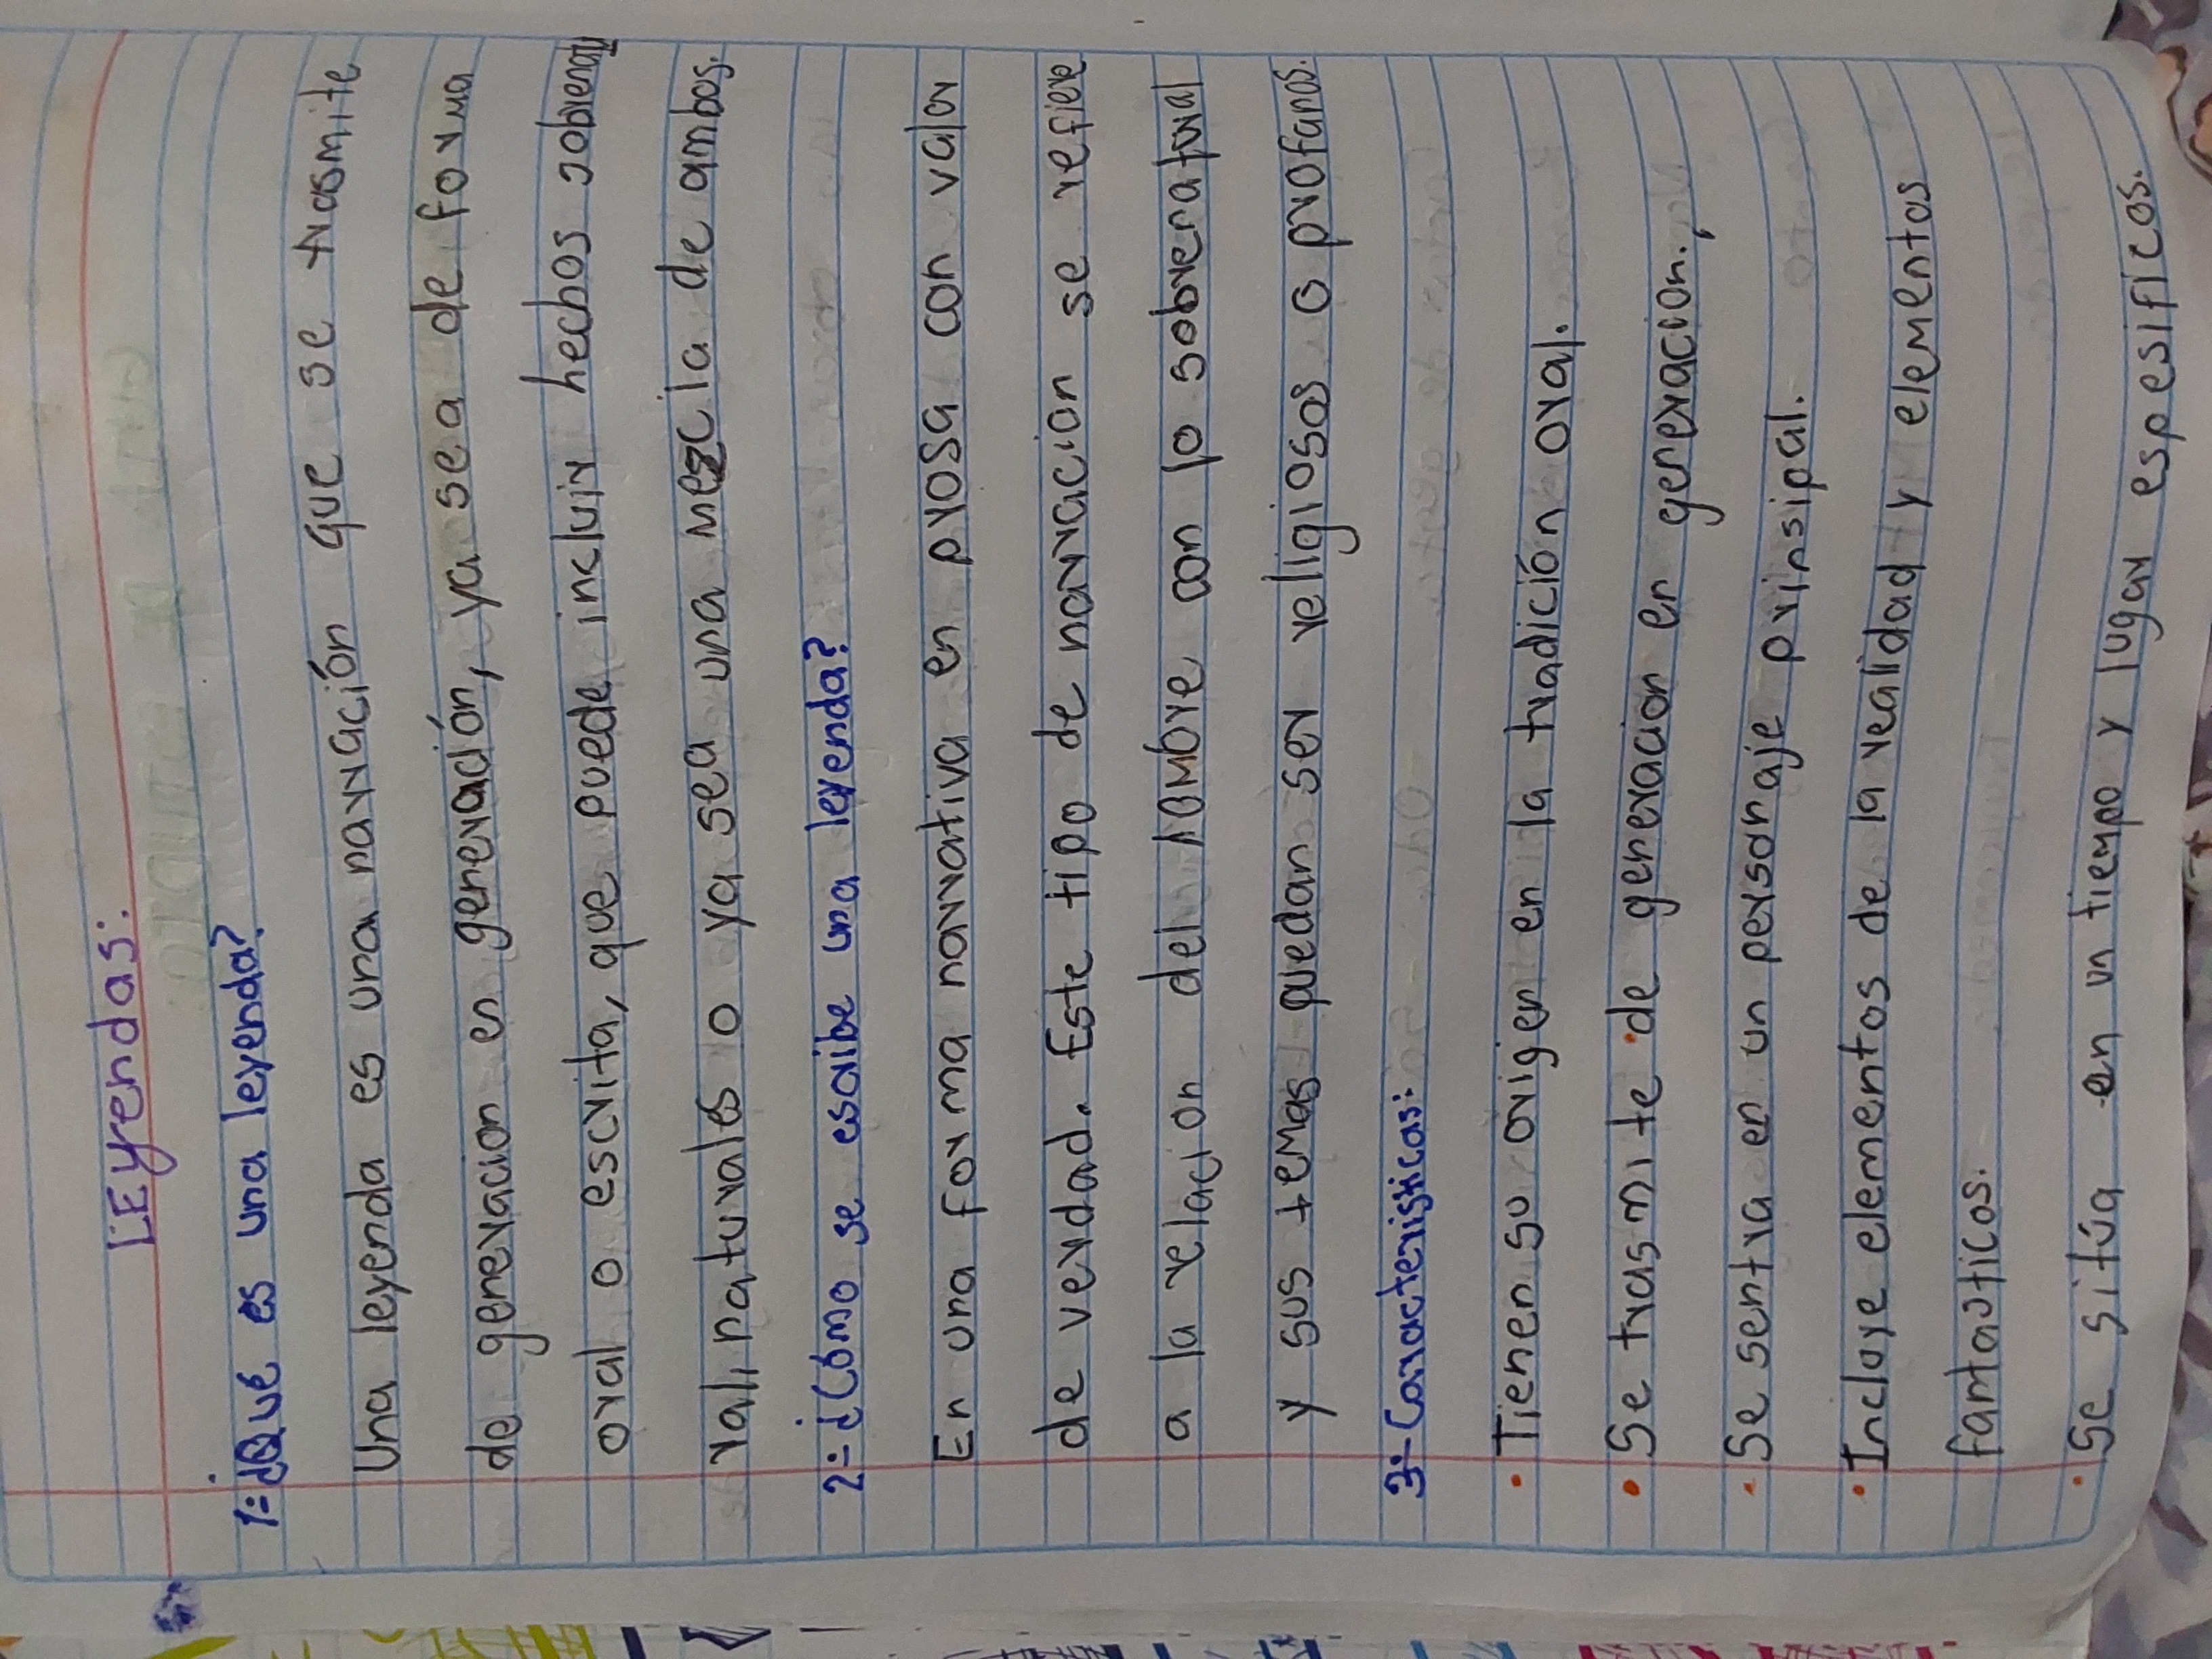 LEyendas:
1=¿Qué es una leyenda?
Una leyenda es una narración que se trasmite
de generacion en generación, ya sea de forma
oral o escrita, que puede incluir hechos sobrenatu
rali naturales o ya sea una mezcla de ambos.
2=¿Como se escribe una leyenda?
En una forma narrativa en prosa con valor
de verdad. Este tipo de narracion se refiere
a la relacion del hombre con lo sobrenatural
y sus temas puedan ser religiosos o profanos.
3=Caracteristicas:
• Tienen su origen en la tradición oral.
• Se trasmite de generacion en generacion.,
• Se sentra en un personaje prinsipal.
• Incluye elementos de la realidad y elementos
fantasticos.
• Se sitúa en un tiempo y lugar espesificos.